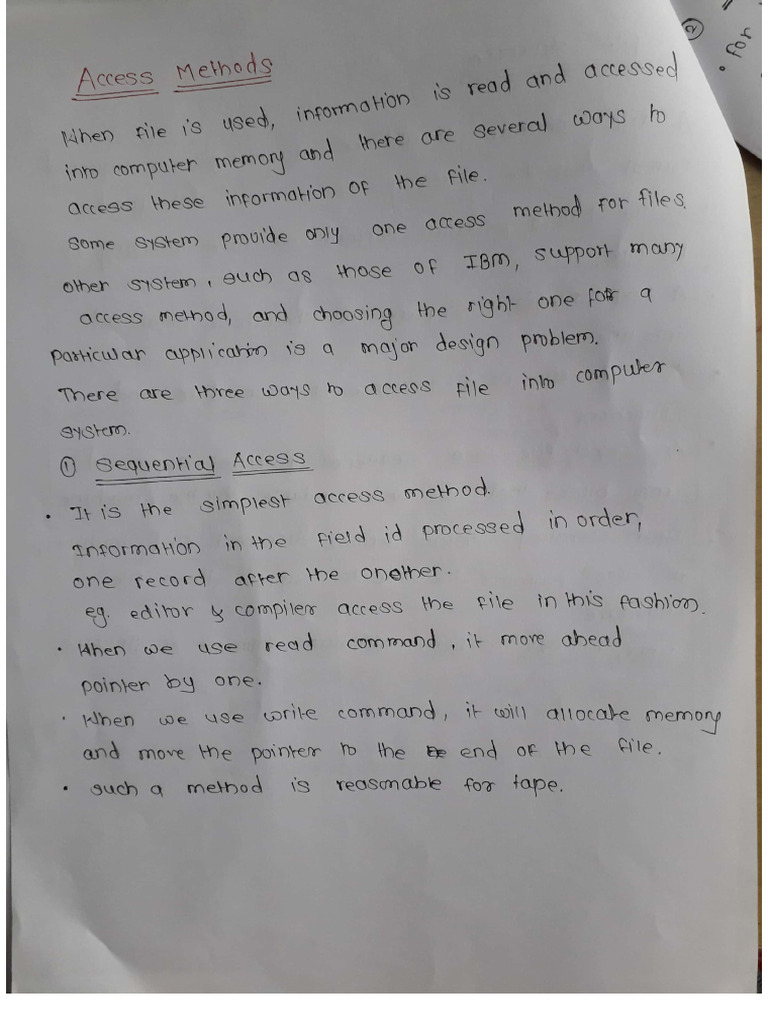 Access Methods
When file is used, information is read and accessed
into computer memory and there are several ways to
access these information of the file.
Some system provide only one access method for files.
other system, such as those of IBM, support many
access method, and choosing the right one for a
particular application is a major design problem.
There are three ways to access file into computer
system.
① Sequential Access
• It is the simplest access method.
Information in the field id processed in order,
one record after the onother.
eg. editor & compiler access the file in this fashion.
• When we use read command, it move ahead
pointer by one.
• When we use write command, it will allocate memory
and move the pointer to the end of the file.
• such a method is reasonable for tape.
②
• for